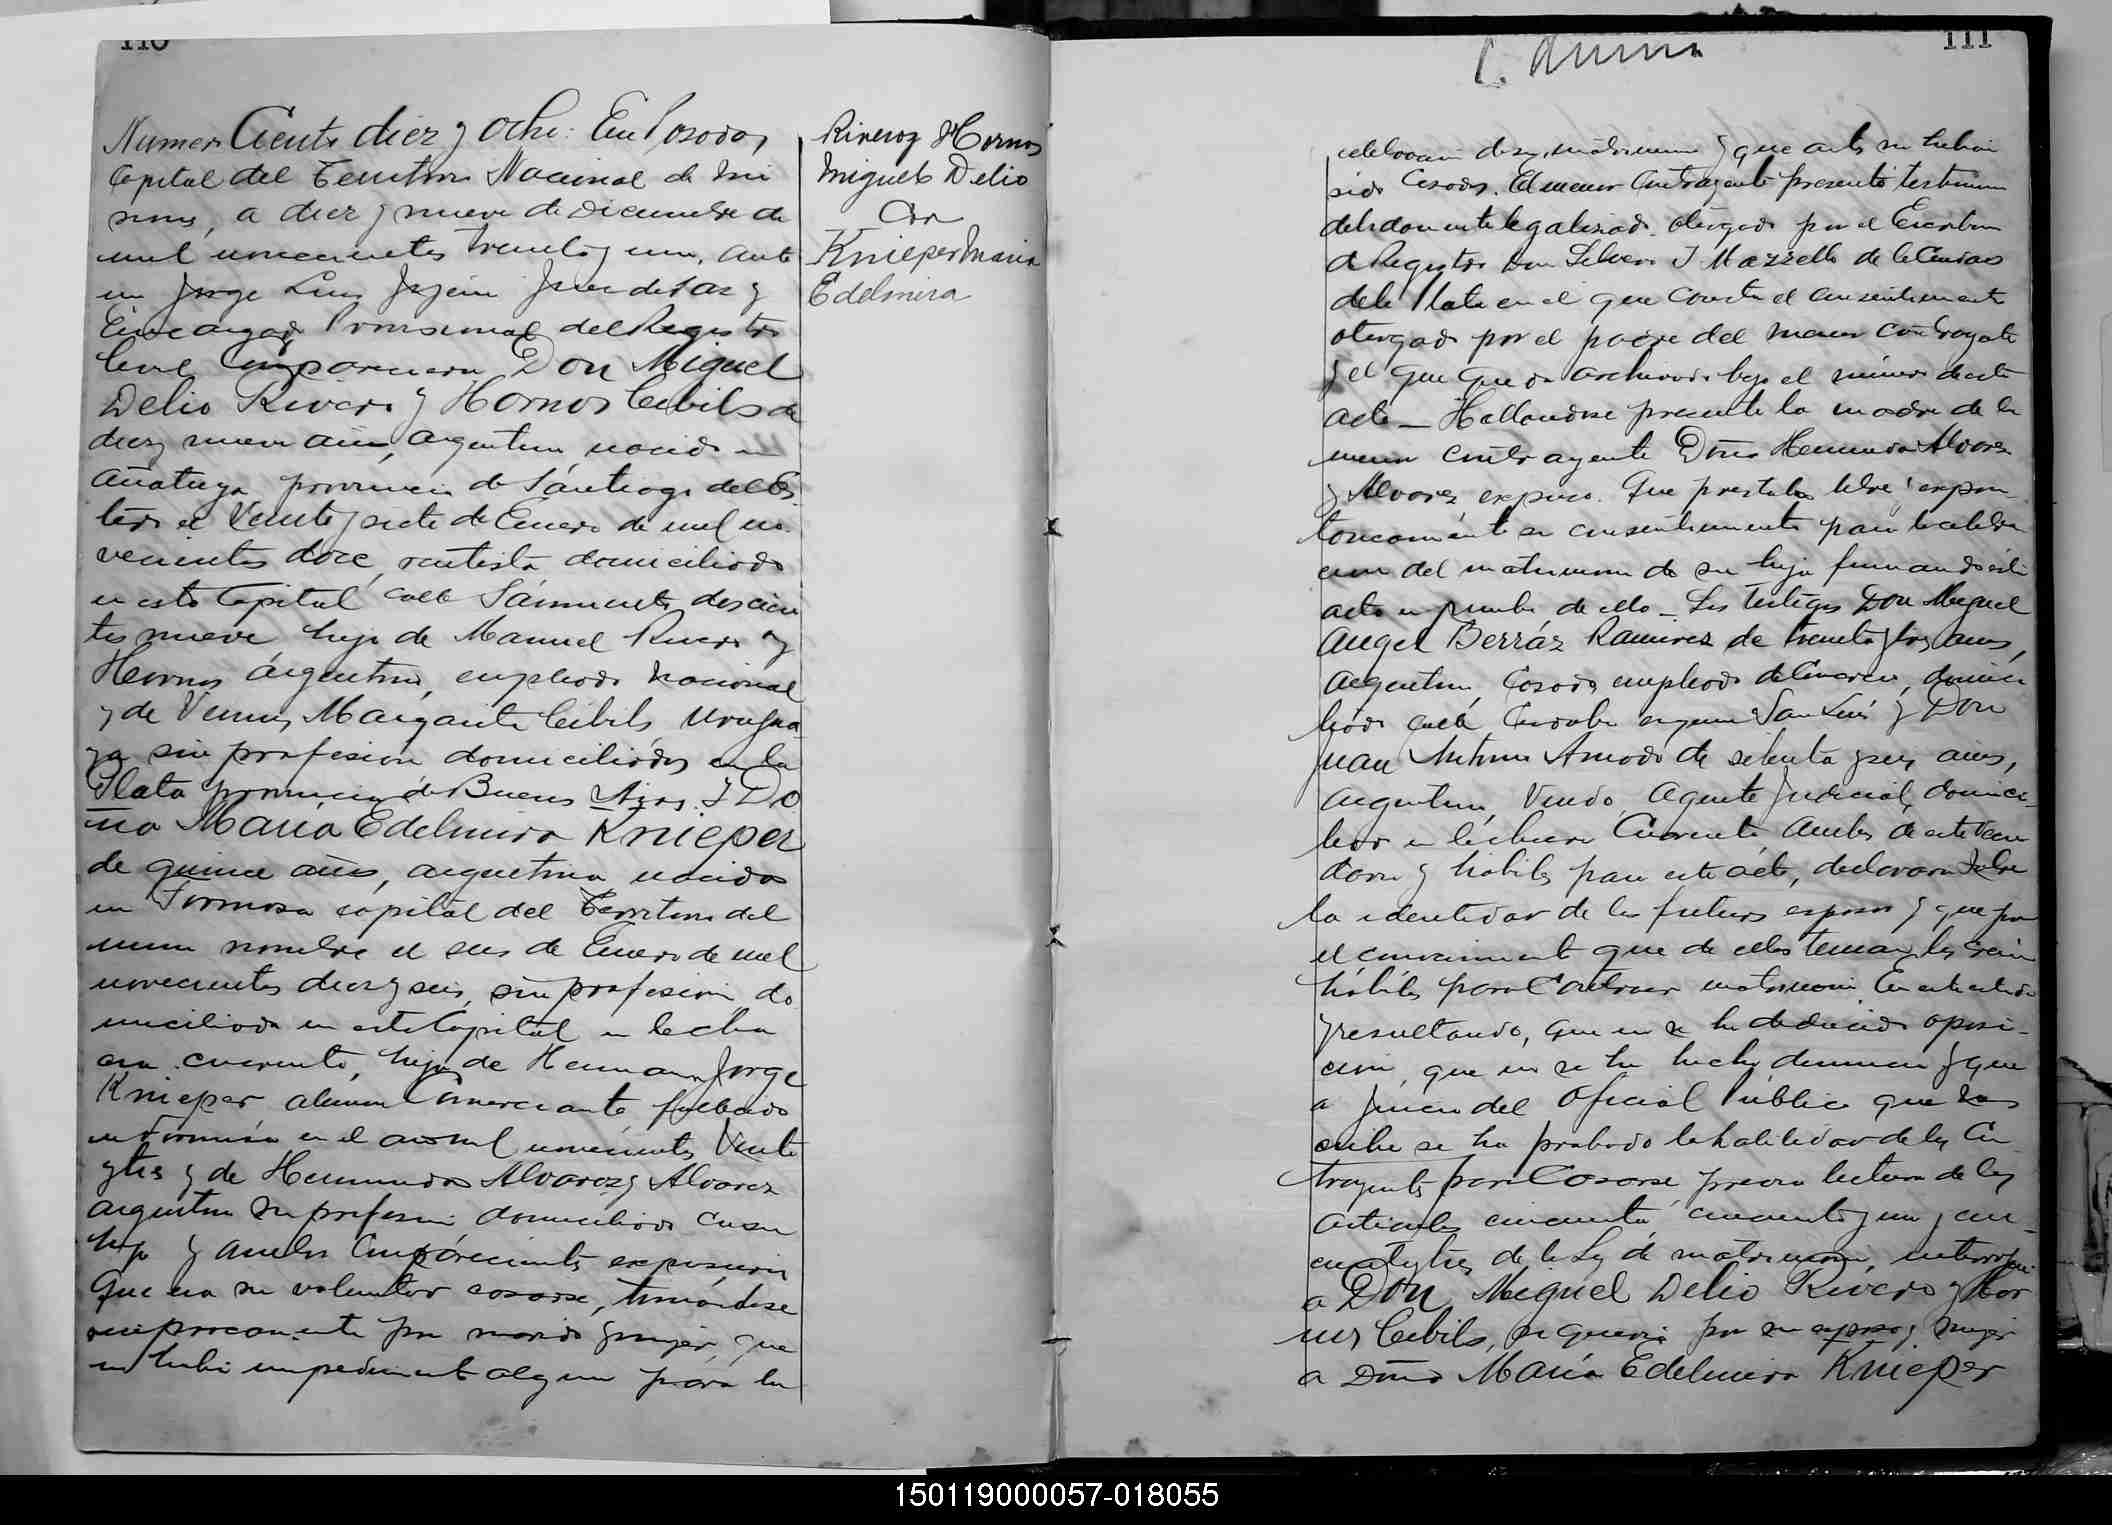 110
Numero Ciento diez y ocho: En Posadas,
Capital del Territorio Nacional de Mi
siones, a diez y nueve de Diciembre de
mil novecientos treinta y uno, ante
mi Jorge Luis Juez de Paz y
Encargado Provisional del Registro
Civil Comparecieron Don Miguel
Delio Rivero y Hornos Cibils de
diez y nueve años, argentino nacido en
Añatuya provincia de Santiago del Es
tero el Veinte y siete de Enero de mil no
vecientos doce, rentista domiciliado
en esta Capital calle Sarmiento doscien
tos nueve hijo de Manuel Rivero y
Hornos argentino, empleado nacional
y de Venus Margarita Cibils, urugua
ya sin profesion domiciliados en la
Plata provincia de Buenos Aires. Y Do
ña María Edelmira Knieper
de quince años, argentina nacida
en Formosa capital del Territorio del
mismo nombre el seis de Enero de mil
novecientos diez y seis, sin profesion do
miciliada en esta Capital en la cha
cra cuarenta, hija de Herman Jorge
Knieper aleman Comerciante fallecido
en Formosa en el año mil novecientos Veinte
y tres y de Herminda Alvarez y Alvarez
argentina sin profesion domiciliada con su
hija y ambos Comparecientes expusieron
Que era su voluntad casarse, tomándose
reciprocamente por marido y mujer, que
no había impedimento alguno para la
Rivero y Hornos
Miguel Delio
Con
Knieper Maria
Edelmira
111
celebracion de su matrimonio y que antes no habian
sido Casados. El menor Contrayente presentó testimonio
debidamente legalizado otorgado por el Escribano
de Registro Don Silverio J Mazzello de la Ciudad
de la Plata en el que consta el consentimiento
otorgado por el padre del menor contrayente
y el que queda archivado bajo el número de esta
acta — Hallandose presente la madre de la
menor contrayente Doña Herminda Alvarez
y Alvarez, expuso: Que prestaba libre y espon
taneamente su consentimiento para la celebra
cion del matrimonio de su hija firmando esta
acta en prueba de ello — Los testigos Don Miguel
Angel Berráz Ramirez de treinta y tres años,
argentino, Casado empleado de Comercio, domici
liado calle Cordoba esquina San Luis y Don
Juan Antonio Amado de setenta y seis años,
argentino, Viudo, Agente Judicial, domici-
liado en la chacra Cuarenta Ambos de este Vecin
dario y hábiles para este acto, declararon sobre
la identidad de los futuros esposos y que por
el conocimiento que de ellos tenian, los creian
hábiles para Contraer matrimonio. En este estado
y resultando, que no se ha deducido oposi-
cion, que no se ha hecho denuncia y que
a juicio del Oficial Público que sus
cribe se ha probado la habilidad de los Con
trayentes para Casarse, previa lectura de los
articulos cincuenta cincuenta y uno y cin-
cuenta y tres de la Ley de matrimonio, interrogué
a Don Miguel Delio Rivero y Hor
nos Cibils, si queria por su esposa y mujer
a Doña María Edelmira Knieper
150119000057-018055